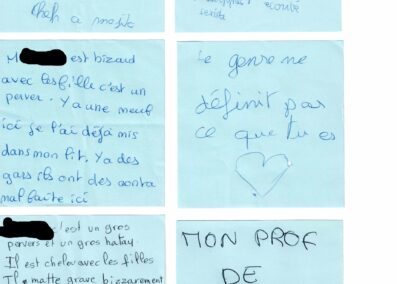 écouté
M est bizard
avec les fille c'est un
perver. Y a une meuf
ici je l'ai déjà mis
dans mon lit. Y a des
gars ils ont des conta
mal faite ici
Le genre ne
définit pas
ce que tu es
c'est un gros
pervers et un gros hatay
Il est chelou avec les filles
Il matte grave bizzarement
MON PROF
DE